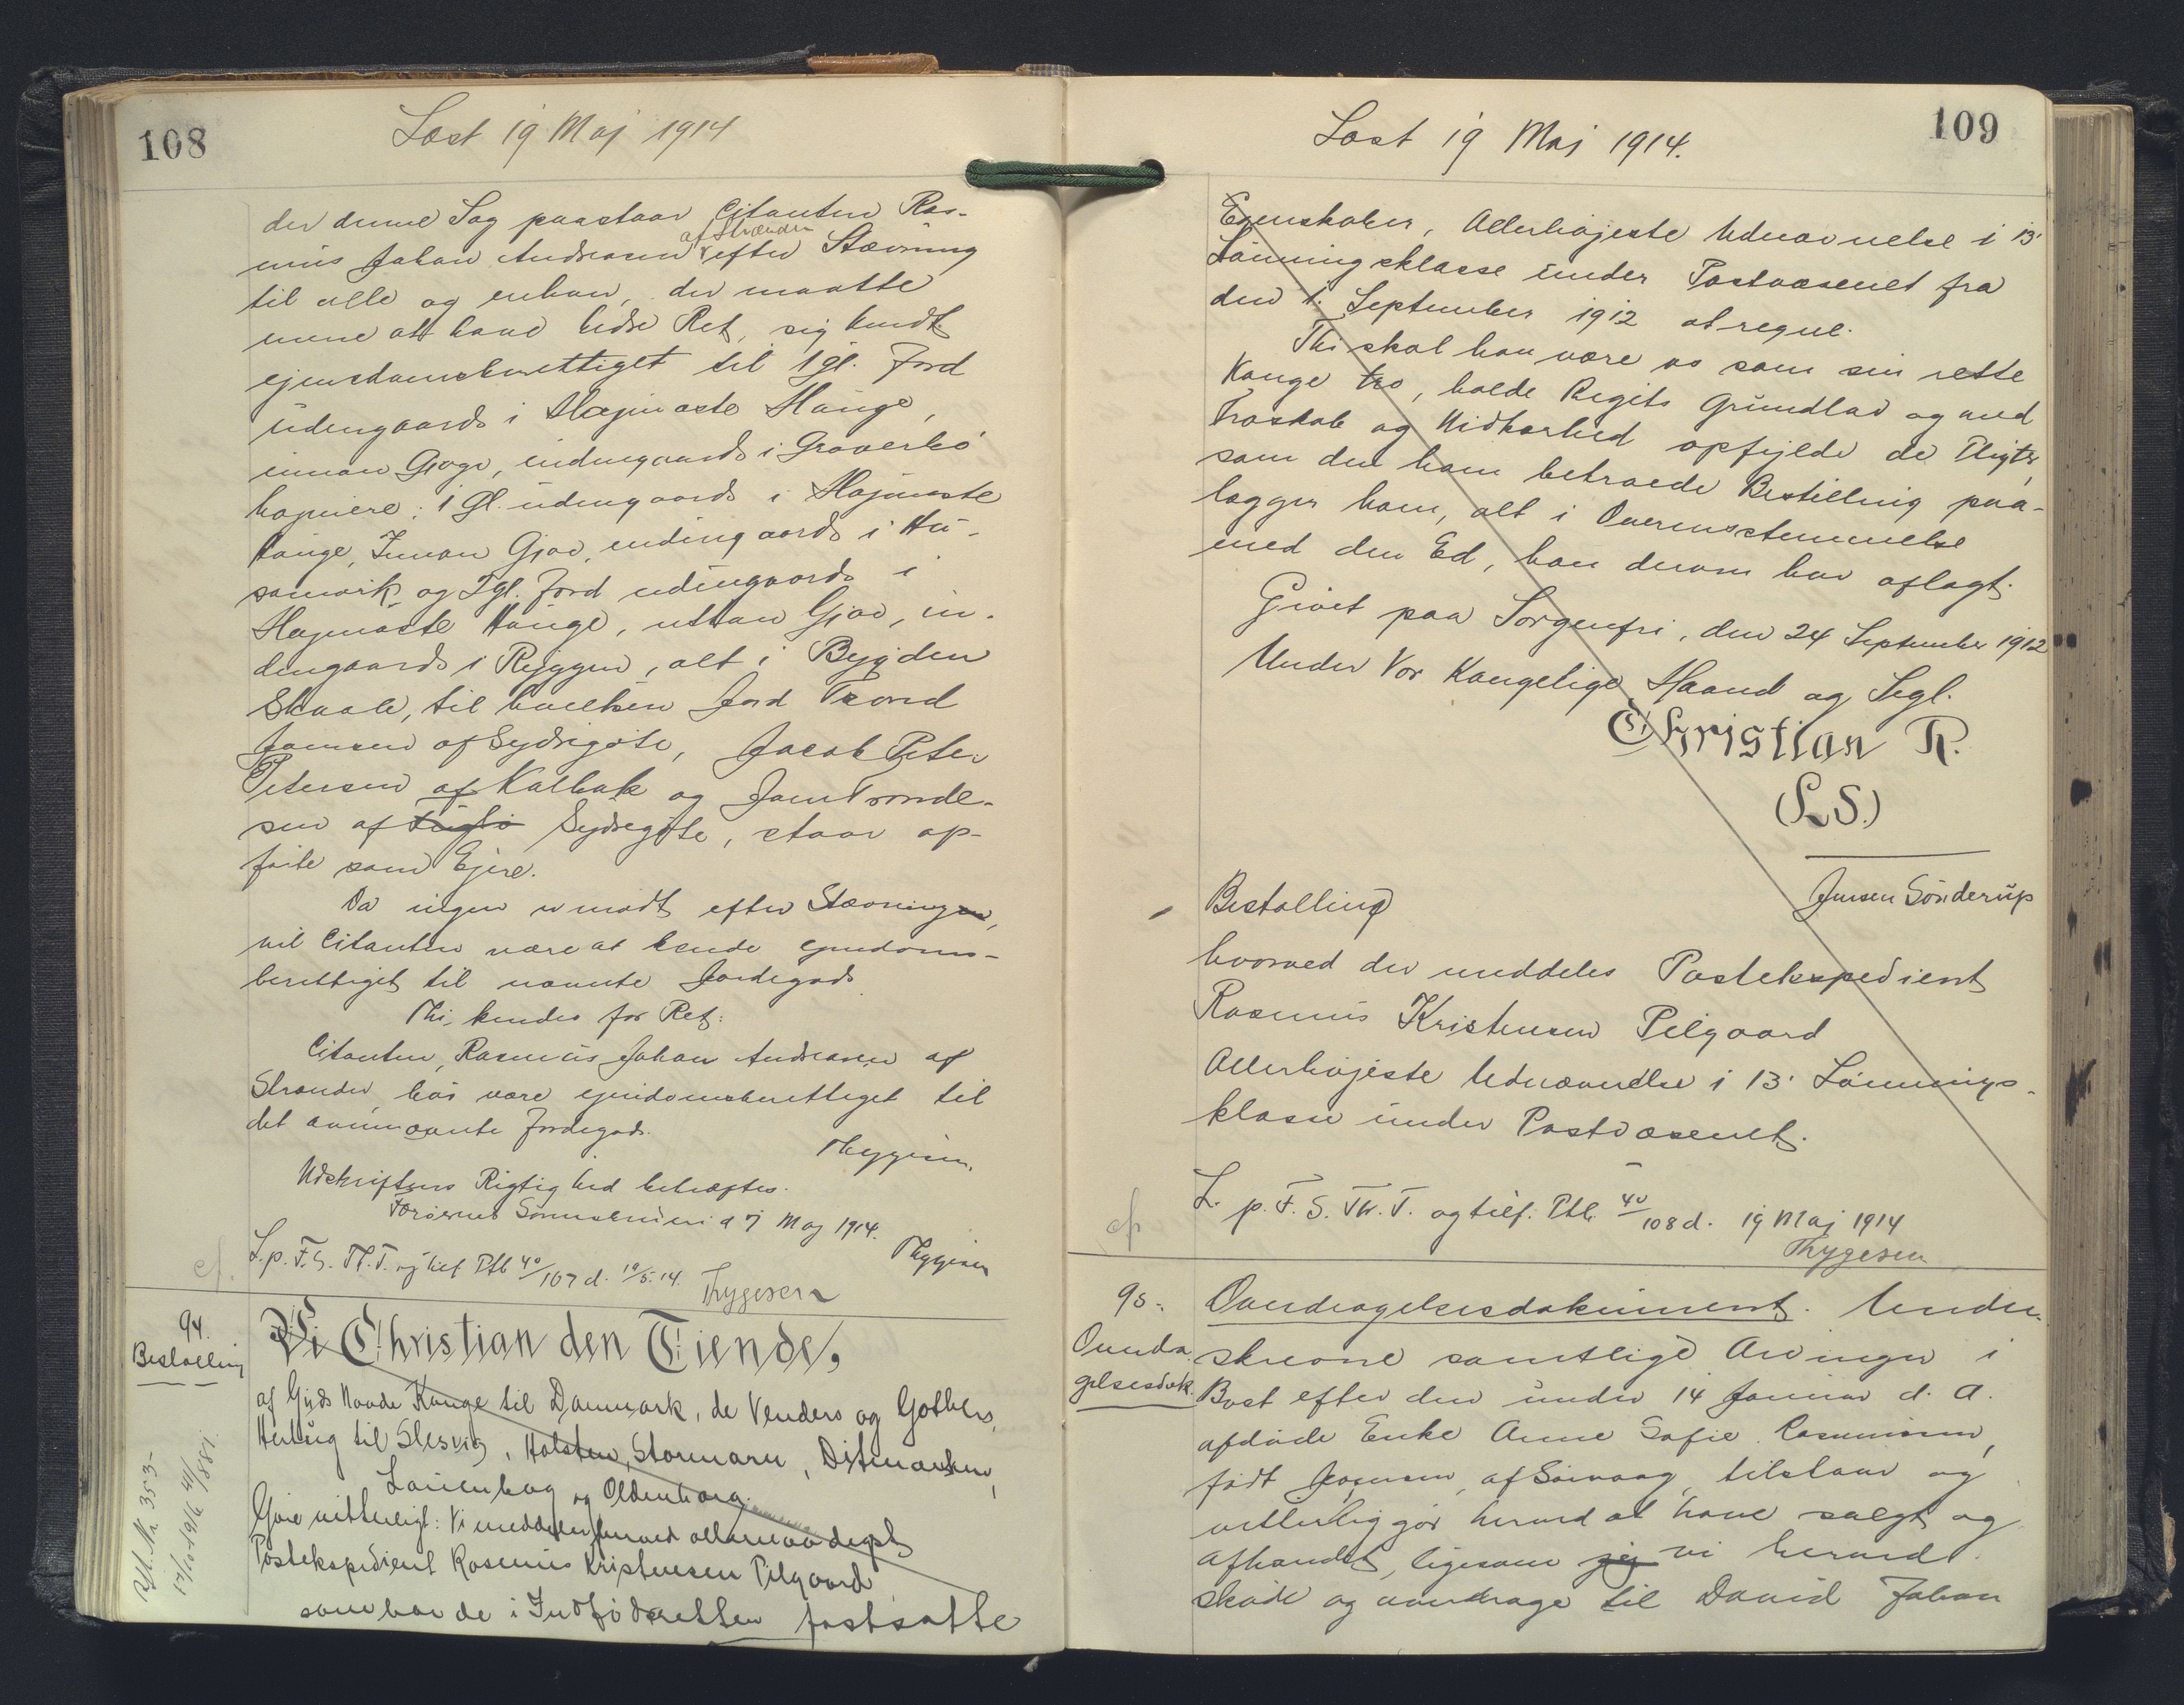 108
Læst 19 Maj 1914
der denne Sag paastaar Citanten Ras-
mus Johan Andreasen af Strænder efter Stævning
til alle og enhver, der maatte
mene at have bedre Ret, sig kendt
ejendomsberettiget til 1 gl. Jord
udengaards i Højmaste Hauge,
innan Gjógv, indengaards i
1 Gl. udengaards i Højmaste
Hauge, Innan Gjov, indengaards i Hu-
sarvik og 2 gl. Jord udengaards i
Højmaste Hauge, uttan Gjov, in-
dengaards i Ryggen, alt i Bygden
Skaale, til hvilken Jord Trond
Joensen af Sydregøte, Jacob Peter
Petersen af Kalbak og Joen Tronde-
sen af Fuglø Sydregøte, staar op-
førte som Ejere.
Da ingen er mødt efter Stævningen,
vil Citanten være at kende ejendoms-
berettiget til nævnte Jordegods
Thi kendes for Ret:
Citanten, Rasmus Johan Andreasen af
Strænder bør være ejendomsberettiget til
det ommeldte Jordegods.
Thygesen.
Udskriftens Rigtighed bekræftes.
Færøernes Sorenskriveri d 7 Maj 1914.
Thygesen
L. p. F. S. Th. T. og tilf Ptb 40/107 d. 19/5. 14. Thygesen
cf.
94.
Bestalling
Vi Christian den Tiende,
af Guds Naade Konge til Danmark, de Venders og Gothers,
Hertug til Slesvig, Holsten, Stormarn, Ditmarsken,
Lauenborg og Oldenborg.
Gøre vitterligt: Vi meddeler herved allernaadigst
Postekspedient Rasmus Kristensen Pilgaard
som har de i Indfødsretten fastsatte
109
Læst 19 Maj 1914.
Egenskaber, Allerhøjeste Udnævnelse i 13'
Lønningsklasse under Postvæsenet fra
den 1. September 1912 at regne.
Thi skal han være os som sin rette
Konge tro, holde Rigets Grundlov og med
Troskab og Nidkærhed opfylde de Pligter,
som den ham betroede Bestilling paa-
lægger ham, alt i Overensstemmelse
med den Ed, han derom har aflagt.
Givet paa Sorgenfri, den 24 September 1912
Under Vor Kongelige Haand og Segl.
Christian R.
(L.S.)
Jensen Sønderup
Bestalling
hvorved der meddeles Postekspedient
Rasmus Kristensen Pilgaard
Allerhøjeste Udnævnelse i 13' Lønnings-
klasse under Postvæsenet.
L. p. F. S. Th. T. og tilf. Ptb. 40/108 d. 19 Maj 1914
Thygesen
cf
95.
Overdra-
gelsesdok.
Overdragelsesdokument. Under-
skrevne samtlige Arvinger i
Boet efter den under 14 Januar d. A.
afdøde Enke Anne Sofie Rasmussen,
født Joensen, af Sørvaag, tilstaar og
vitterliggør herved at have solgt og
afhændet, ligesom jeg vi herved
skøde og overdrage til David Johan